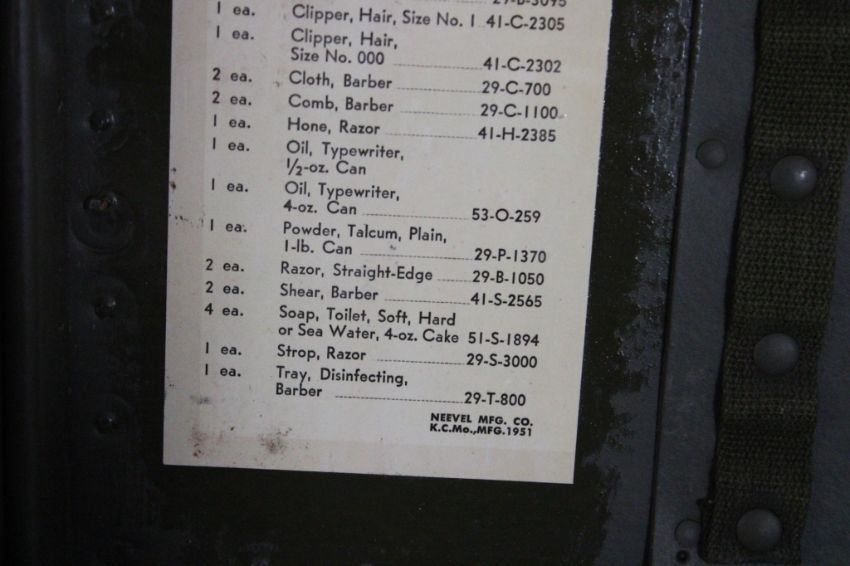 29-B-3095
1 ea. Clipper, Hair, Size No. 1 41-C-2305
1 ea. Clipper, Hair,
Size No. 000 41-C-2302
2 ea. Cloth, Barber 29-C-700
2 ea. Comb, Barber 29-C-1100
1 ea. Hone, Razor 41-H-2385
1 ea. Oil, Typewriter,
½-oz. Can
1 ea. Oil, Typewriter,
4-oz. Can 53-O-259
1 ea. Powder, Talcum, Plain,
1-lb. Can 29-P-1370
2 ea. Razor, Straight-Edge 29-B-1050
2 ea. Shear, Barber 41-S-2565
4 ea. Soap, Toilet, Soft, Hard
or Sea Water, 4-oz. Cake 51-S-1894
1 ea. Strop, Razor 29-S-3000
1 ea. Tray, Disinfecting,
Barber 29-T-800
NEEVEL MFG. CO.
K.C.Mo.,MFG.1951